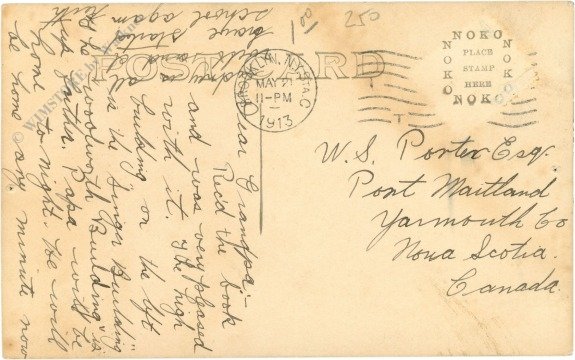 POST CARD
NOKO
NOKO
PLACE
STAMP
HERE
NOKO
NOKO
BROOKLYN, N.Y. STA. C
MAY 21
11-PM
1913
1 00
250
W.S. Porter Esq.
Port Maitland
Yarmouth Co
Nova Scotia.
Canada.
Dear Grandpa:-
Rec'd the book
and was very pleased
with it. The high
building on the left
is the Singer Building
the woolworth Building is
Papa will be
home to night. He will
be home any minute now
is all
and
have started
school again
Ruth